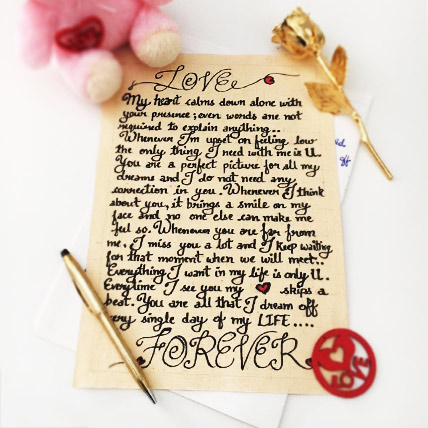 LOVE
My heart calms down alone with
your presence; even words are not
required to explain anything...
Whenever I'm upset on feeling low
the only thing I need with me is U.
You are a perfect picture for all my
dreams and I do not need any
correction in you. Whenever I think
about you, it brings a smile on my
face and no one else can make me
feel so. Whenever you are far from
me. I miss you a lot and I keep waiting
for that moment when we will meet..
Everything I want in my life is only U.
Everytime I see you my ❤ skips a
beat. You are all that I dream off
every single day of my LIFE....
FOREVER
LOVE